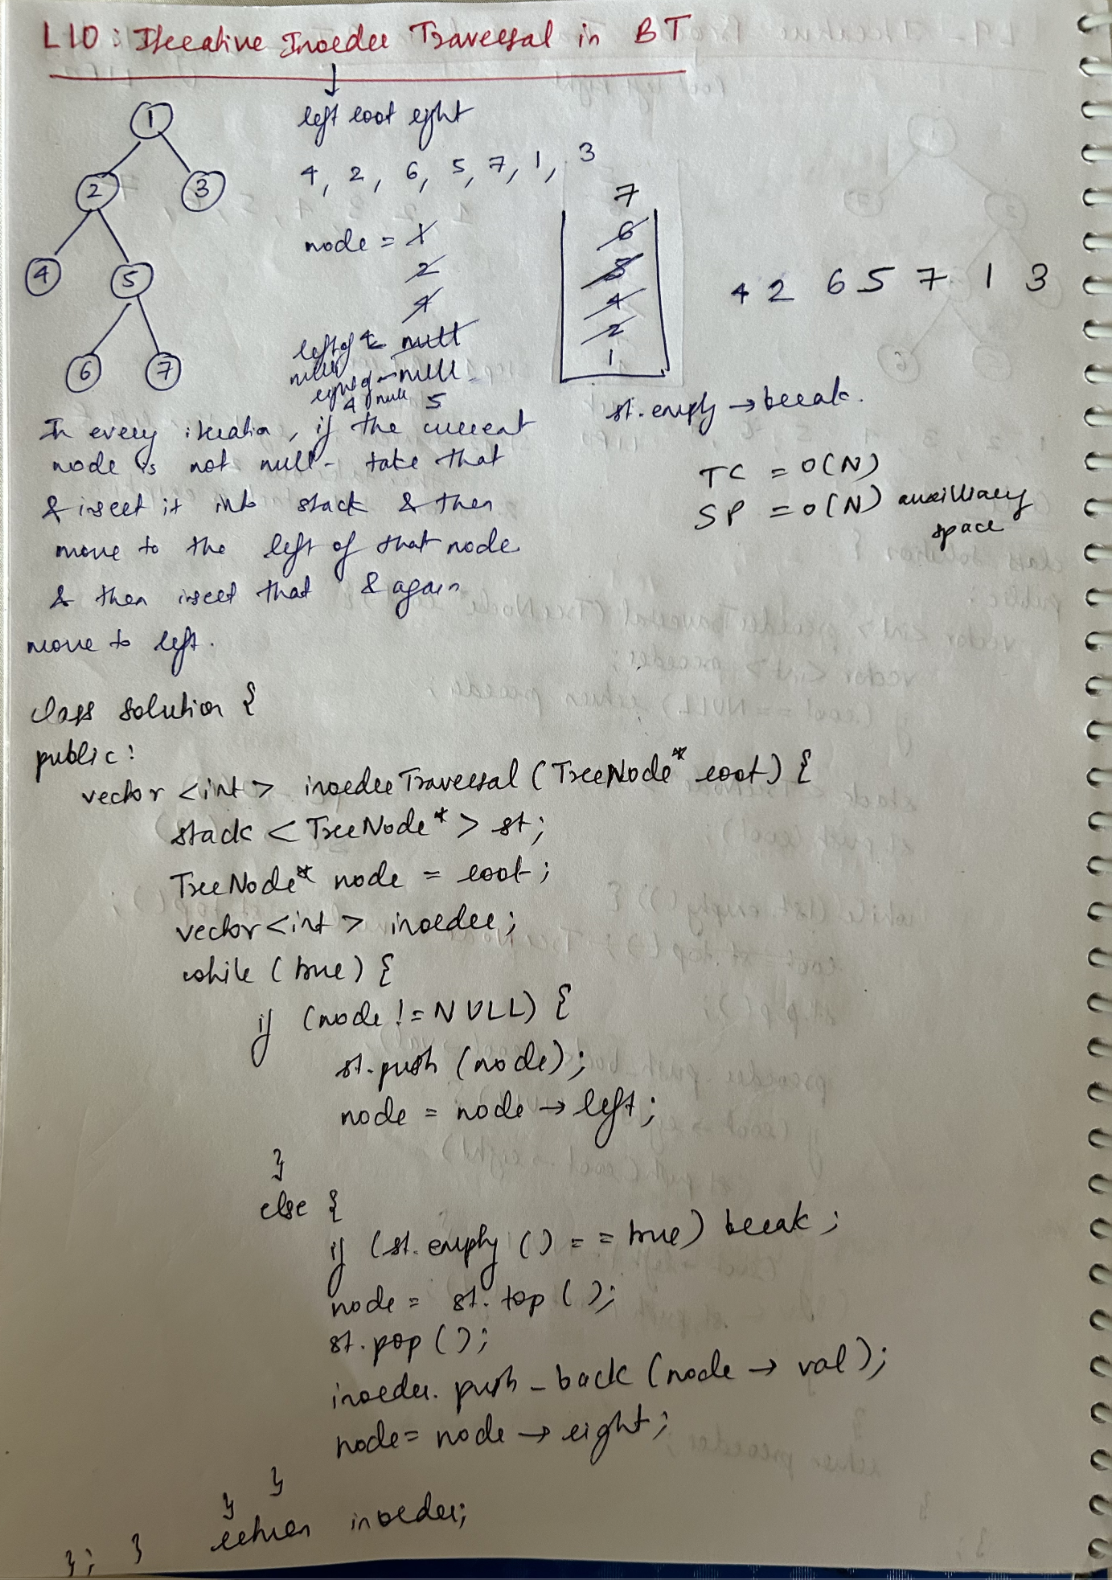 L10: Iterative Inorder Traversal in BT
left root right
4, 2, 6, 5, 7, 1, 3
1
2
3
4
5
6
7
node = 1
2
4
left of 4 null
null
right of null
4 null 5
7
6
5
4
2
1
4 2 6 5 7 1 3
st.empty → break.
TC = O(N)
SP = O(N) auxilliary
space
In every iteration, if the current
node is not null - take that
& insert it into stack & then
move to the left of that node
& then insert that & again
move to left.
class Solution {
public:
vector <int> inorderTraversal (TreeNode* root) {
stack <TreeNode*> st;
TreeNode* node = root;
vector<int> inorder;
while (true) {
if (node != NULL) {
st.push (node);
node = node → left;
}
else {
if (st.empty () == true) break;
node = st.top ();
st.pop ();
inorder.push_back (node → val);
node = node → right;
}
}
return inorder;
}
};